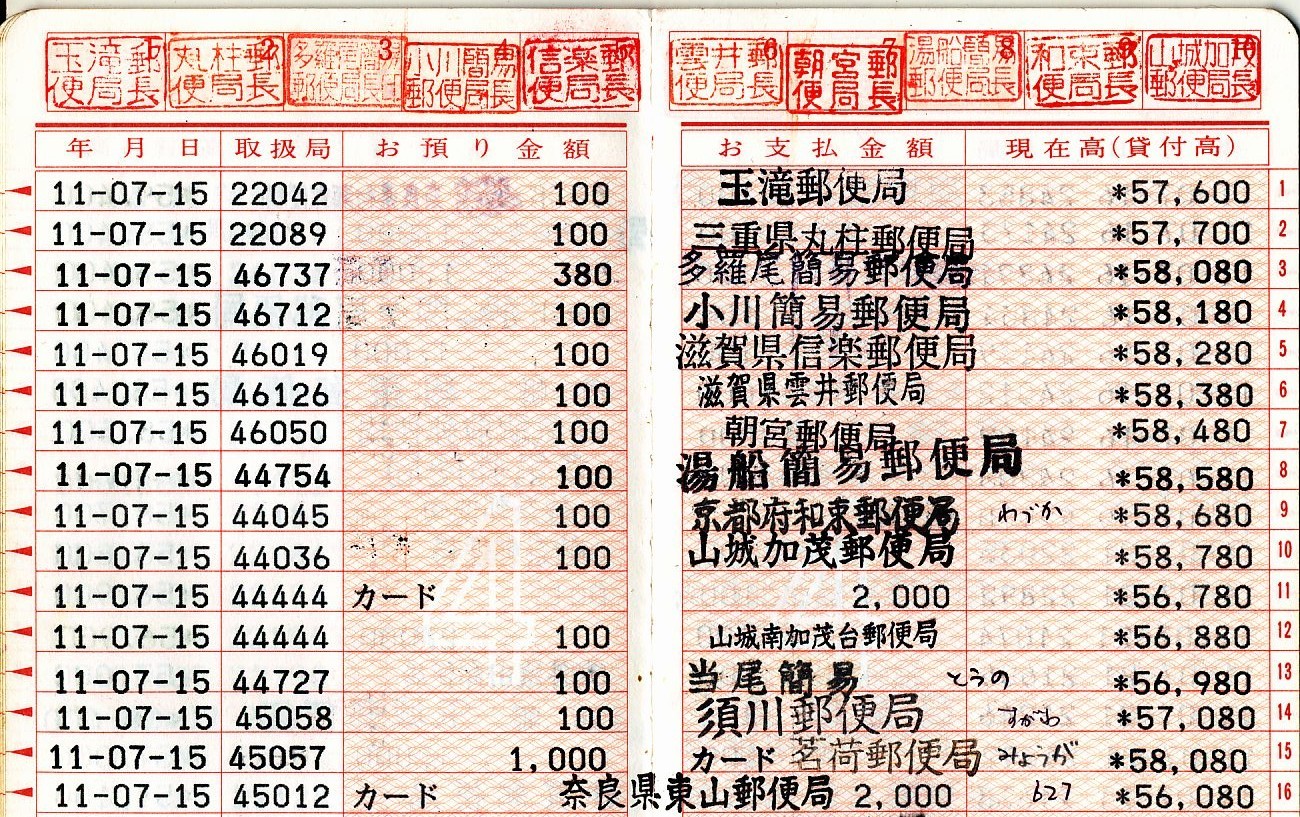 玉滝郵便局長 1 丸柱郵便局長 2 多羅尾簡易郵便局長 3 小川簡易郵便局長 4 信楽郵便局長 雲井郵便局長 6 朝宮郵便局長 7 湯船簡易郵便局長 8 和束郵便局長 9 山城加茂郵便局長 10
年月日 取扱局 お預り金額 お支払金額 現在高(貸付高)
11-07-15 22042 100 玉滝郵便局 *57,600 1
11-07-15 22089 100 三重県丸柱郵便局 *57,700 2
11-07-15 46737 380 多羅尾簡易郵便局 *58,080 3
11-07-15 46712 100 小川簡易郵便局 *58,180 4
11-07-15 46019 100 滋賀県信楽郵便局 *58,280 5
11-07-15 46126 100 滋賀県雲井郵便局 *58,380 6
11-07-15 46050 100 朝宮郵便局 *58,480 7
11-07-15 44754 100 湯船簡易郵便局 *58,580 8
11-07-15 44045 100 京都府和束郵便局 わづか *58,680 9
11-07-15 44036 100 山城加茂郵便局 *58,780 10
11-07-15 44444 カード 2,000 *56,780 11
11-07-15 44444 100 山城南加茂台郵便局 *56,880 12
11-07-15 44727 100 当尾簡易 とうの *56,980 13
11-07-15 45058 100 須川郵便局 すがわ *57,080 14
11-07-15 45057 1,000 カード 茗荷郵便局 みょうが *58,080 15
11-07-15 45012 カード 奈良県東山郵便局 2,000 627 *56,080 16